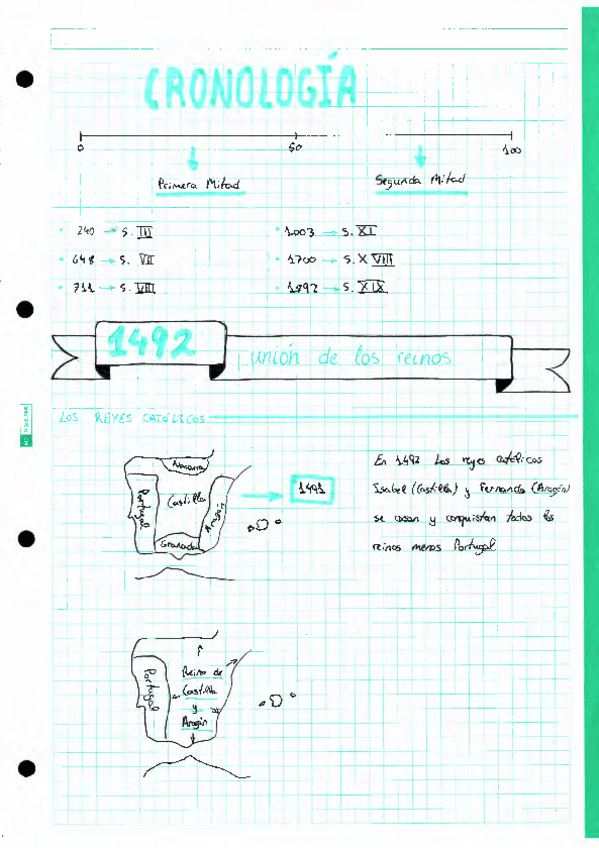 CRONOLOGÍA
0 50 100
Primera Mitad Segunda Mitad
240 → S. III
648 → S. VII
711 → S. VIII
1003 → S. XI
1700 → S. XVIII
1892 → S. XIX
1492 unión de los reinos
LOS REYES CATÓLICOS
Navarra
Portugal
Castilla
Aragón
Granada
1491
En 1492 los reyes católicos
Isabel (Castilla) y Fernando (Aragón)
se casan y conquistan todos los
reinos menos Portugal
Portugal
Reino de
Castilla
y
Aragón